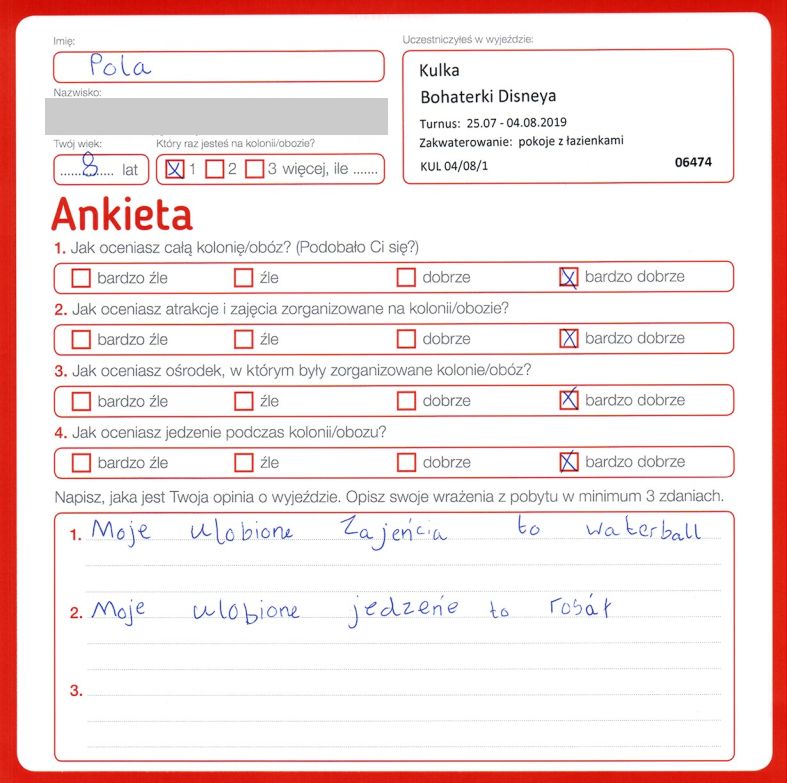 Imię:
Pola
Nazwisko:
Twój wiek:
8 lat
Który raz jesteś na kolonii/obozie?
1 2 3 więcej, ile .......
Uczestniczyłeś w wyjeździe:
Kulka
Bohaterki Disneya
Turnus: 25.07 - 04.08.2019
Zakwaterowanie: pokoje z łazienkami
KUL 04/08/1 06474
Ankieta
1. Jak oceniasz całą kolonię/obóz? (Podobało Ci się?)
bardzo źle źle dobrze bardzo dobrze
2. Jak oceniasz atrakcje i zajęcia zorganizowane na kolonii/obozie?
bardzo źle źle dobrze bardzo dobrze
3. Jak oceniasz ośrodek, w którym były zorganizowane kolonie/obóz?
bardzo źle źle dobrze bardzo dobrze
4. Jak oceniasz jedzenie podczas kolonii/obozu?
bardzo źle źle dobrze bardzo dobrze
Napisz, jaka jest Twoja opinia o wyjeździe. Opisz swoje wrażenia z pobytu w minimum 3 zdaniach.
1. Moje ulobione Zajeńcia to waterball
2. Moje ulobione jedzeńe to rosáł
3.